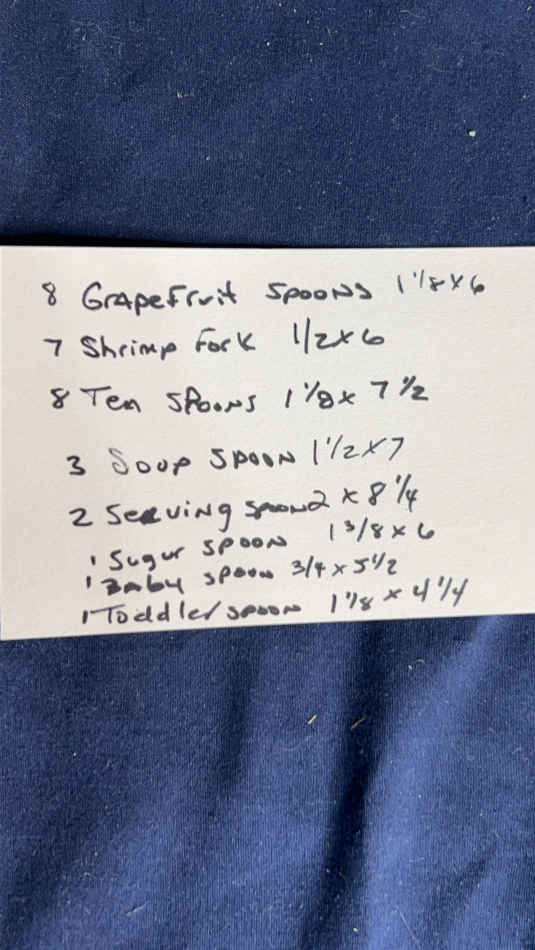 8 Grapefruit spoons 1 1/8 x 6
7 Shrimp Fork 1/2 x 6
8 Tea Spoons 1 1/8 x 7 1/2
3 Soup Spoon 1 1/2 x 7
2 Serving spoon 2 x 8 1/4
1 Sugar spoon 1 3/8 x 6
1 Baby spoon 3/4 x 5 1/2
1 Toddler spoon 1 1/8 x 4 1/4